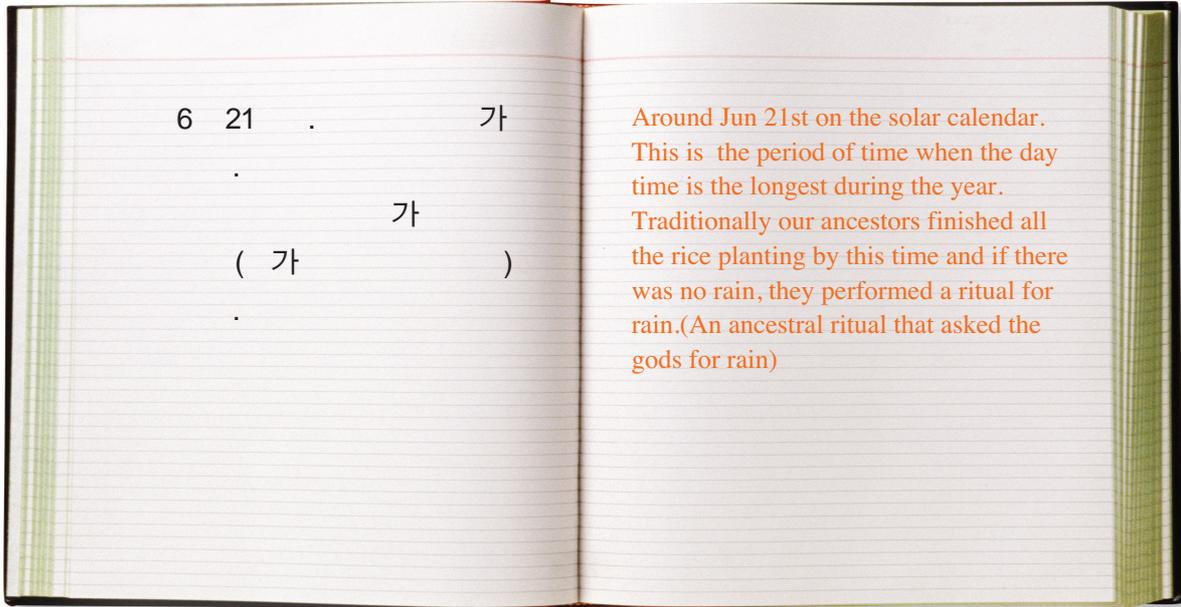 6 21 . 가
.
가
( 가 )
.
Around Jun 21st on the solar calendar.
This is the period of time when the day
time is the longest during the year.
Traditionally our ancestors finished all
the rice planting by this time and if there
was no rain, they performed a ritual for
rain.(An ancestral ritual that asked the
gods for rain)